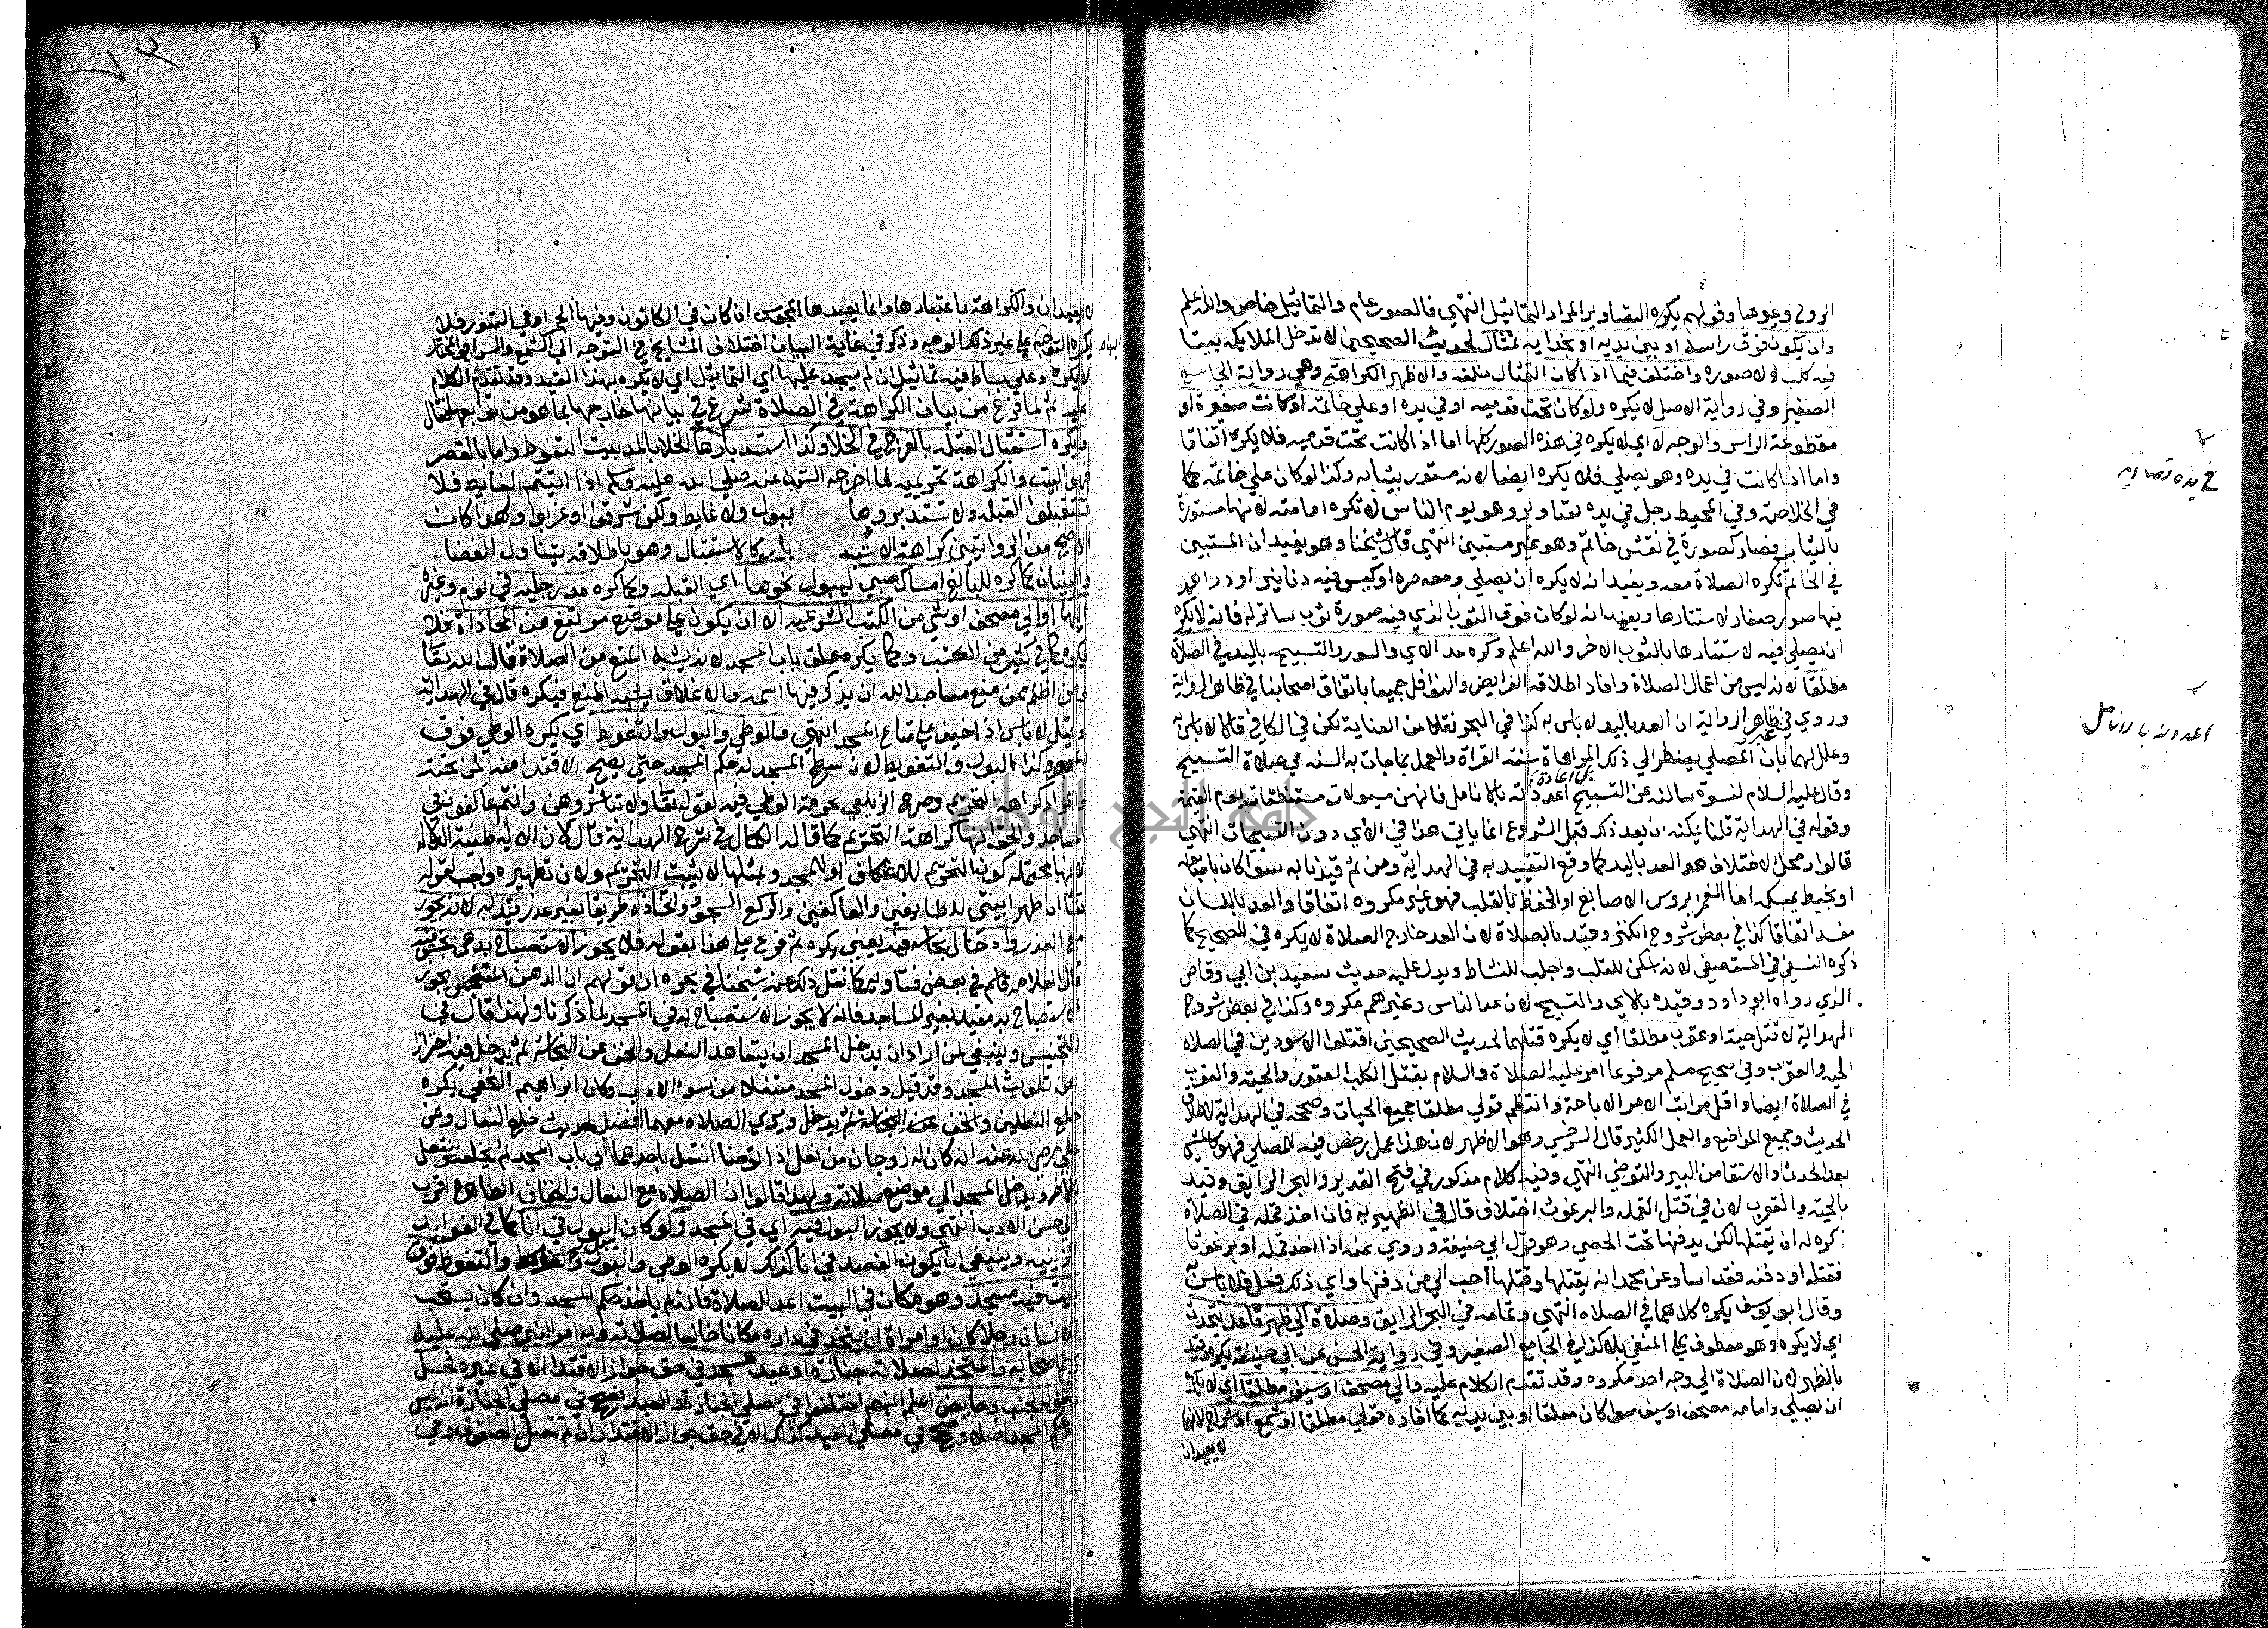 الروح وغيرها وقولهم يكره التصاوير المراد التماثيل انتهي فالصورة عام والتماثيل خاص والله اعلم
وان يكون فوق راسه او بين يديه او بحذايه تمثال لحديث الصحيحين لا تدخل الملايكه بيتا
فيه كلب ولا صورة واختلف فيما اذا كان التمثال خلفه والاظهر الكراهة وهي رواية الجامع
الصغير وفي رواية الاصل لا يكره ولو كان تحت قدميه او في يده او علي خاتمه او كانت صغيرة او
مقطوعة الراس والوجه لا اي لا يكره في هذه الصور كلها اما اذا كانت تحت قدميه فلا يكره اتفاقا
واما اذا كانت في يده وهو يصلي فلا يكره ايضا لانه مستور بثيابه وكذا لو كان علي خاتمه كما
في الخلاصة وفي المحيط رجل في يده تصاوير وهو يوم الناس لا تكره امامته لانها مستورة
بالثياب فصار كصورة في نقش خاتم وهو غير مستبين انتهي قال شيخنا وهو يفيد ان المستبين
في الخاتم تكره الصلاة معه ويفيد انه لا يكره ان يصلي ومعه صرة او كيس فيه دنانير او دراهم
فيها صور صغار لاستتارها ويفيد انه لو كان فوق الثوب الذي فيه صورة ثوب ساتر له فانه لا يكره
ان يصلي فيه لاستتارها بالثوب الاخر والله اعلم وكره عد الآي والسور والتسبيح باليد في الصلاة
مطلقا لانه ليس من اعمال الصلاة وافاد اطلاقه الفرايض والنوافل جميعا باتفاق اصحابنا في ظاهر الرواية
وروي في غير ظاهر الرواية ان العد باليد لا باس به كذا في البحر نقلا عن العناية لكن في الكافي قالا لا باس به
وعلل لهما بان المصلي يضطر الي ذلك لمراعاة سنة القراة والعمل بما جات به السنه في صلاة التسبيح
وقال عليه السلام لنسوة سالنه عن التسبيح اعددنه بالانامل فانهن مسولات مستنطقات يوم القيمة
وقوله في الهداية قلنا يمكنه ان يعد ذلك قبل الشروع انما ياتي هذا في الآي دون التسبيحات انتهي
قالوا ومحل الاختلاف هو العد باليد كما وقع التقييد به في الهداية ومن ثم قيدنا به سوا كان باصابعه
او بخيط يمسكه اما الغمز بروس الاصابع او الحفظ بالقلب فهو غير مكروه اتفاقا والعد باللسان
مفسد اتفاقا كذا في بعض شروح الكنز وقيد بالصلاة لان العد خارج الصلاة لا يكره في الصحيح كما
ذكره النسفي في المستصفي لانه اسكن للقلب واجلب للنشاط ويدل عليه حديث سعيد بن ابي وقاص
الذي رواه ابو داود وقيده بالآي والتسبيح لان عد الناس وغيرهم مكروه وكذا في بعض شروح
الهداية لا قتل حية او عقرب مطلقا اي لا يكره قتلهما لحديث الصحيحين اقتلوا الاسودين في الصلاه
الحيه والعقرب وفي صحيح مسلم مرفوعا امر عليه الصلاة والسلام بقتل الكلب العقور والحية والعقرب
في الصلاة ايضا واقل مراتب الامر الاباحة وانتظم قولي مطلقا جميع الحيات وصححه في الهداية لاطلاق
الحديث وجميع المواضع والعمل الكثير قال السرخسي وهو الاظهر لان هذا عمل رخص فيه للمصلي فهو كالمشي
بعد الحدث والاستقا من البير والتوضي انتهي وفيه كلام مذكور في فتح القدير والبحر الرايق وقيد
بالحيه والعقرب لان في قتل القمله والبرغوث اختلاف قال في الظهيريه فان اخذ قمله في الصلاة
كره له ان يقتلها لكن يدفنها تحت الحصي وهو قول ابي حنيفة وروي عنه اذا اخذ قمله او برغوثا
فقتله او دفنه فقد اسا وعن محمد انه يقتلها وقتلها احب الي من دفنها واي ذلك فعل فلا باس به
وقال ابو يوسف يكره كلاهما في الصلاه انتهي وتمامه في البحر الرايق وصلاة الي ظهر قاعد يتحدث
اي لا يكره وهو معطوف علي المنفي بلا كذا في الجامع الصغير وفي رواية الحسن عن ابي حنيفه يكره وقيد
بالظهر لان الصلاة الي وجه احد مكروه وقد تقدم الكلام عليه والي مصحف او سيف مطلقا اي لا يكره
ان يصلي وامامه مصحف او سيف سوا كان معلقا او بين يديه كما افاده قولي مطلقا او شمع او سراج لانهما
لا يعبدان
في يده تصاوير
اعددنه بالانامل
٧٢
لا يعبدان والكراهة باعتبارها وانما يعبدها المجوس ان كان في الكانون وفيها الجمر او في التنور فلا
يكره التوجه علي غير ذلك الوجه وذكر في غاية البيان اختلاف المشايخ في التوجه الي الشمع والسراج والمختار
لا يكره وعلي بساط فيه تماثيل ان لم يسجد عليها اي التماثيل اي لا يكره بهذا القيد وقد تقدم الكلام
عليه ثم لما فرغ من بيان الكراهة في الصلاة شرع في بيانها خارجها مما هو من توابعها فقال
ويكره استقبال القبله بالفرج في الخلا وكذا استدبارها الخلا بالمد بيت التغوط واما بالقصر
فهو النبت والكراهة تحريميه لما اخرجه الستة عنه صلي الله عليه وسلم اذا اتيتم الغايط فلا
تستقبلوا القبله ولا تستدبروها ببول ولا غايط ولكن شرقوا او غربوا ولهذا كان
الاصح من الروايتين كراهة الاستدبار كالاستقبال وهو باطلاقه يتناول الفضا
والبنيان كما كره للبالغ امساك صبي ليبول نحوها اي القبله وكما كره مد رجليه في نوم وغيره
اليها او الي مصحف او شي من الكتب الشرعيه الا ان يكون علي موضع مرتفع عن المحاذاة فلا
يكره كما في كثير من الكتب وكما يكره غلق باب المسجد لانه يشبه المنع من الصلاة قال الله تعالي
ومن اظلم ممن منع مساجد الله ان يذكر فيها اسمه والاغلاق يشبه المنع فيكره قال في الهداية
وقيل لا باس اذا خيف علي متاع المسجد انتهي والوطي والبول والتغوط اي يكره الوطي فوق
المسجد وكذا البول والتغوط لان سطح المسجد له حكم المسجد حتي يصح الاقتدا منه لمن تحته
والمراد كراهة التحريم وصرح الزيلعي بحرمة الوطي فيه لقوله تعالي ولا تباشروهن وانتم عاكفون في
المساجد والحق انها كراهة التحريم كما قاله الكمال في شرح الهداية قال لان الايه ظنية الدلاله
لانها محتمله كون التحريم للاعتكاف او للمسجد وبمثلها لا يثبت التحريم ولان تطهيره واجب لقوله
تعالي ان طهرا بيتي للطايفين والعاكفين والركع السجود واتخاذه طريقا بغير عذر وقيد به لانه يجوز
مع العذر وادخال نجاسه فيه يعني يكره ثم فرع علي هذا بقوله فلا يجوز الاستصباح بدهن نجس فيه
قال العلامه قاسم في بعض فتاويه كما نقل ذلك عنه شيخنا في بحره ان قولهم ان الدهن المتنجس يجوز
الاستصباح به مقيد بغير المساجد فانه لا يجوز الاستصباح به في المسجد لما ذكرنا ولهذا قال في
التجنيس وينبغي لمن اراد ان يدخل المسجد ان يتعاهد النعل والخف عن النجاسة ثم يدخل فيه احترازا
عن تلويث المسجد وقد قيل دخول المسجد متنعلا من سو الادب وكان ابراهيم النخعي يكره
خلع النعلين والخف عن النجاسة ثم يدخل ويري الصلاه معهما افضل لحديث خلع النعال وعن
علي رضي الله عنه انه كان له زوجان من نعل اذا توضا انتعل باحدهما الي باب المسجد ثم يخلعه وينتعل
بالاخر ويدخل المسجد الي موضع صلاته ولهذا قالوا ان الصلاه مع النعال والخفاف الطاهره اقرب
الي حسن الادب انتهي ولا يجوز البول فيه اي في المسجد ولو كان البول في انا كما في الفوايد
الزينيه وينبغي ان يكون الفصد في انا كذلك لا يكره الوطي والبول والتغوط فوق
بيت فيه مسجد وهو مكان في البيت اعد للصلاة فانه لم ياخذ حكم المسجد وان كان يستحب
للانسان رجلا كان او امراة ان يتخذ في داره مكانا خاليا لصلاته وبه امر النبي صلي الله عليه
وسلم اصحابه والمتخذ لصلاة جنازة او عيد مسجد في حق جواز الاقتدا لا في غيره فحل
دخوله لجنب وحايض اعلم انهم اختلفوا في مصلي الجنازة والعيد فصحح في مصلي الجنازة انه ليس
له حكم المسجد اصلا وصحح في مصلي العيد كذلك الا في حق جواز الاقتدا وان لم تتصل الصفوف وفي